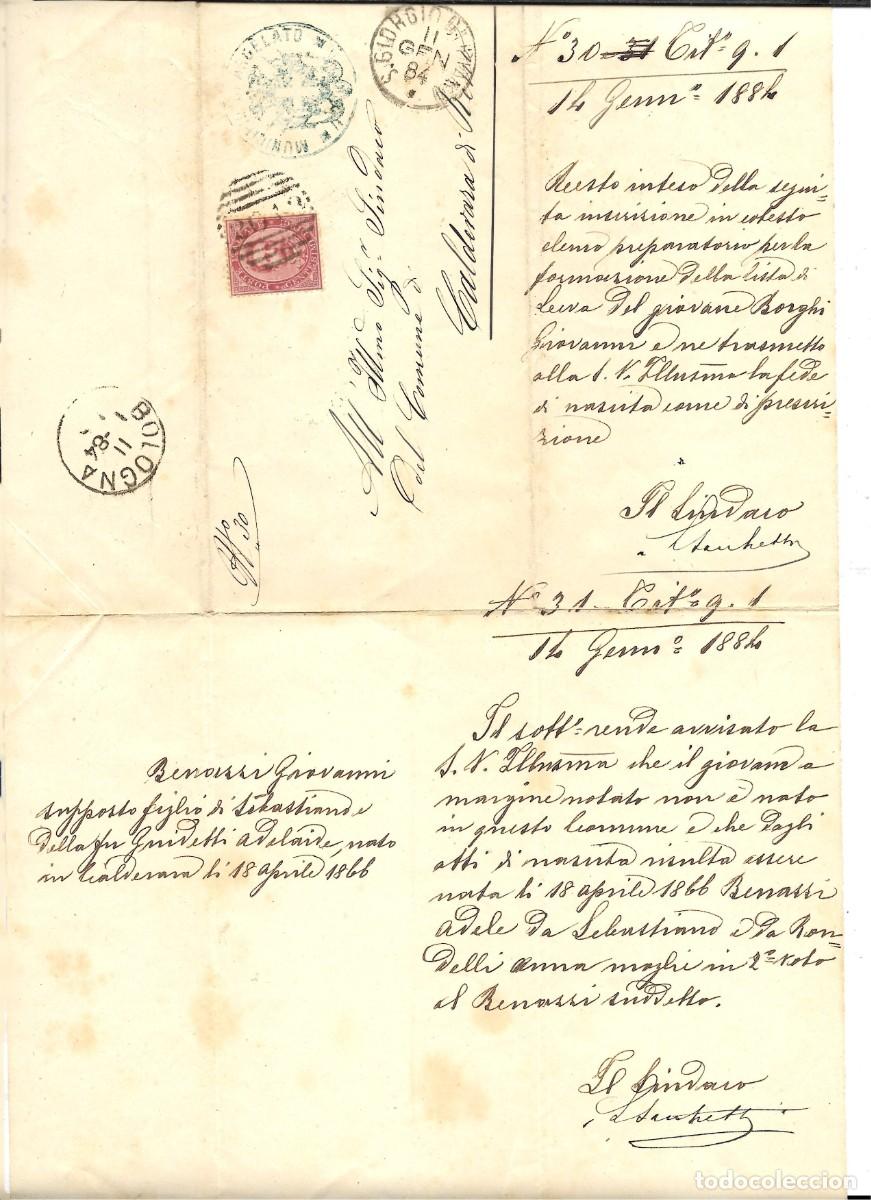 MUNI
GELATO
S. GIORGIO DI PIANO
11
GEN
84
POSTE
BOLOGNA
11
84
N° 30
All'
Illmo Sigr Sindaco
del Comune di
Calderara di
N° 30 31 Tito 9. 1
14 Gennº 1884
Resto inteso della segui-
ta inscrizione in cotesto
elenco preparatorio per la
formazione della lista di
Leva del giovane Borghi
Giovanni e ne trasmetto
alla S. V. Illusma la fede
di nascita come di prescri-
zione
Il Sindaco
Sacchetti
N° 31 Tito 9. 1
14 Gennº 1884
Benazzi Giovanni
supposto figlio di Sebastiano e
della fu Guidetti Adelaide, nato
in Calderara li 18 aprile 1866
Il sotto rende avvisato la
S. V. Illusma che il giovane a
margine notato non è nato
in questo Comune e che dagli
atti di nascita risulta essere
nata li 18 aprile 1866 Benazzi
Adele da Sebastiano e da Ron-
delli Anna moglie in 2° voto
al Benazzi suddetto.
Il Sindaco
Sacchetti
todocoleccion